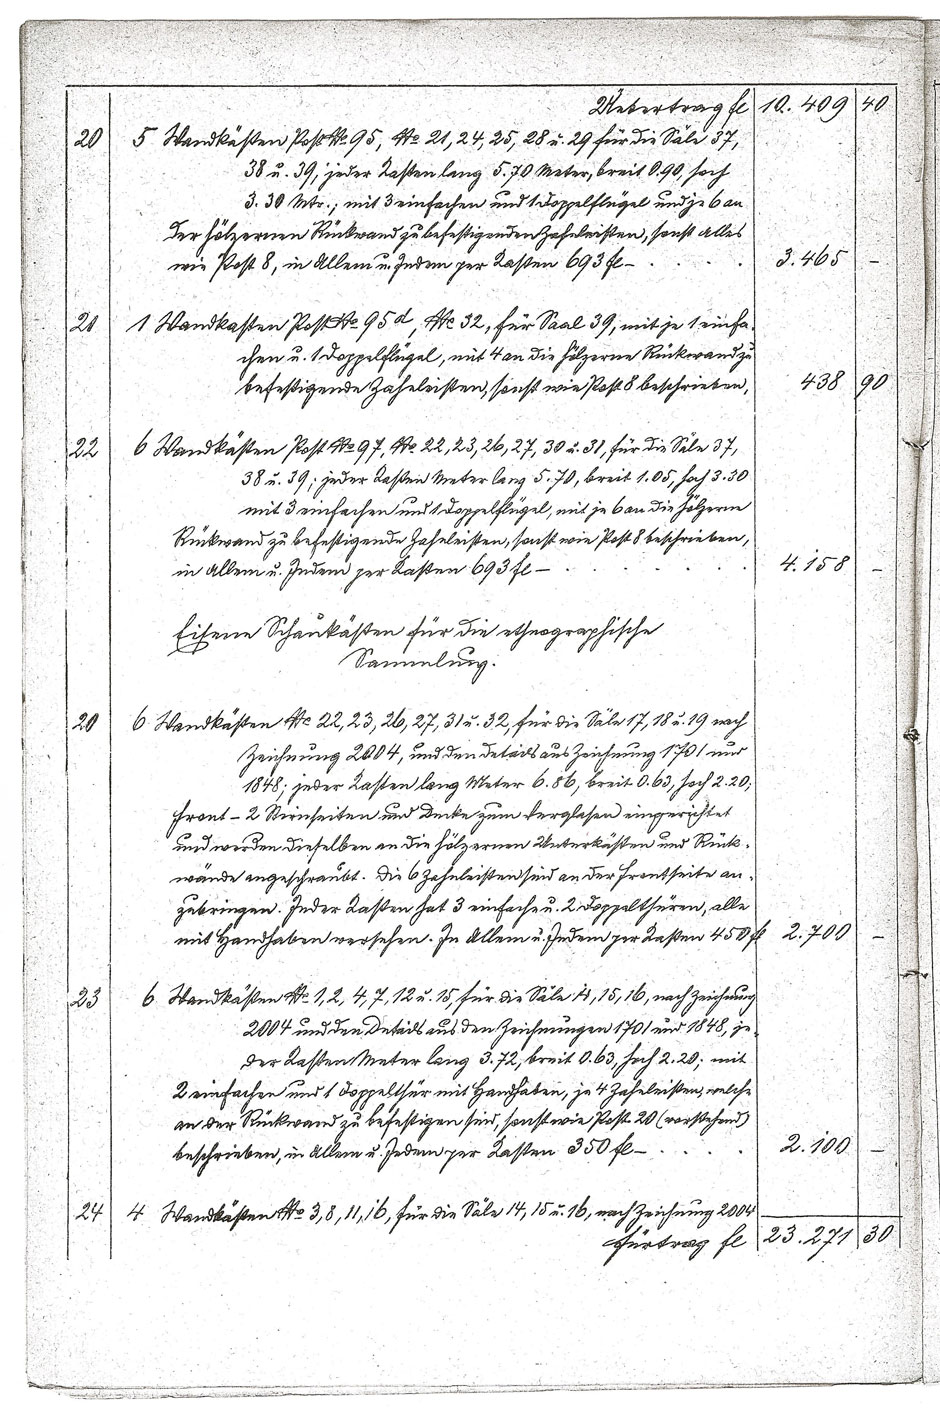 Uebertrag fl 10.409 40
20 5 Wandkästen Post No 95, No 21, 24, 25, 28 u. 29 für die Säle 37,
38 u. 39; jeder Kasten lang 5.70 Meter, breit 0.90, hoch
3.30 Mtr.; mit 3 einfachen und 1 Doppelflügel und je 6 an
der hölzernen Rückwand zu befestigenden Zahnleisten, sonst Alles
wie Post 8, in Allem u. Jedem per Kasten 693 fl – . . . . 3.465 –
21 1 Wandkasten Post No 95d, No 32, für Saal 39, mit je 1 einfa-
chen u. 1 Doppelflügel, mit 4 an die hölzerne Rückwand zu
befestigende Zahnleisten, sonst wie Post 8 beschrieben, 438 90
22 6 Wandkästen Post No 97, No 22, 23, 26, 27, 30 u. 31, für die Säle 37,
38 u. 39; jeder Kasten Meter lang 5.70, breit 1.05, hoch 3.30
mit 3 einfachen und 1 Doppelflügel, mit je 6 an die hölzerne
Rückwand zu befestigende Zahnleisten, sonst wie Post 8 beschrieben,
in Allem u. Jedem per Kasten 693 fl – . . . . . 4.158 –
Eiserne Schaukästen für die ethnographische
Sammlung.
20 6 Wandkästen No 22, 23, 26, 27, 31 u. 32, für die Säle 17, 18 u. 19 nach
Zeichnung 2004, und den Details aus Zeichnung 1701 und
1848; jeder Kasten lang Meter 6.86, breit 0.63, hoch 2.20;
Front – 2 Stirnseiten und Decke zum Verglasen eingerichtet
und werden dieselben an die hölzernen Unterkästen und Rück-
wände angeschraubt. Die 6 Zahnleisten sind an der Frontseite an-
zubringen. Jeder Kasten hat 3 einfache u. 2 Doppelthüren, alle
mit Handhaben versehen. In Allem u. Jedem per Kasten 450 fl 2.700 –
23 6 Wandkästen No 1, 2, 4, 7, 12 u. 15, für die Säle 14, 15, 16, nach Zeichnung
2004 und den Details aus den Zeichnungen 1701 und 1848, je-
der Kasten Meter lang 3.72, breit 0.63, hoch 2.20; mit
2 einfachen und 1 Doppelthür mit Handhaben, je 4 Zahnleisten, welche
an der Rückwand zu befestigen sind, sonst wie Post 20 (vorstehend)
beschrieben, in Allem u. Jedem per Kasten 350 fl – . . . . 2.100 –
24 4 Wandkästen No 3, 8, 11, 16, für die Säle 14, 15 u. 16, nach Zeichnung 2004
Fürtrag fl 23.271 30